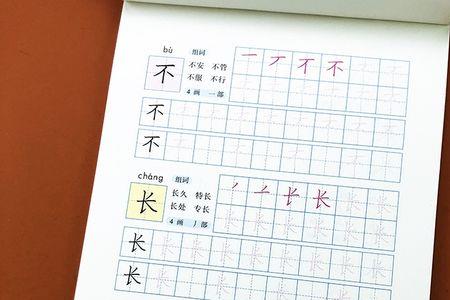 bù 组词
不 不安 不管
不服 不行
4画 一部
一 丆 不 不
不
不
cháng 组词
长 长久 特长
长处 专长
4画 丿部
长 长
长
长